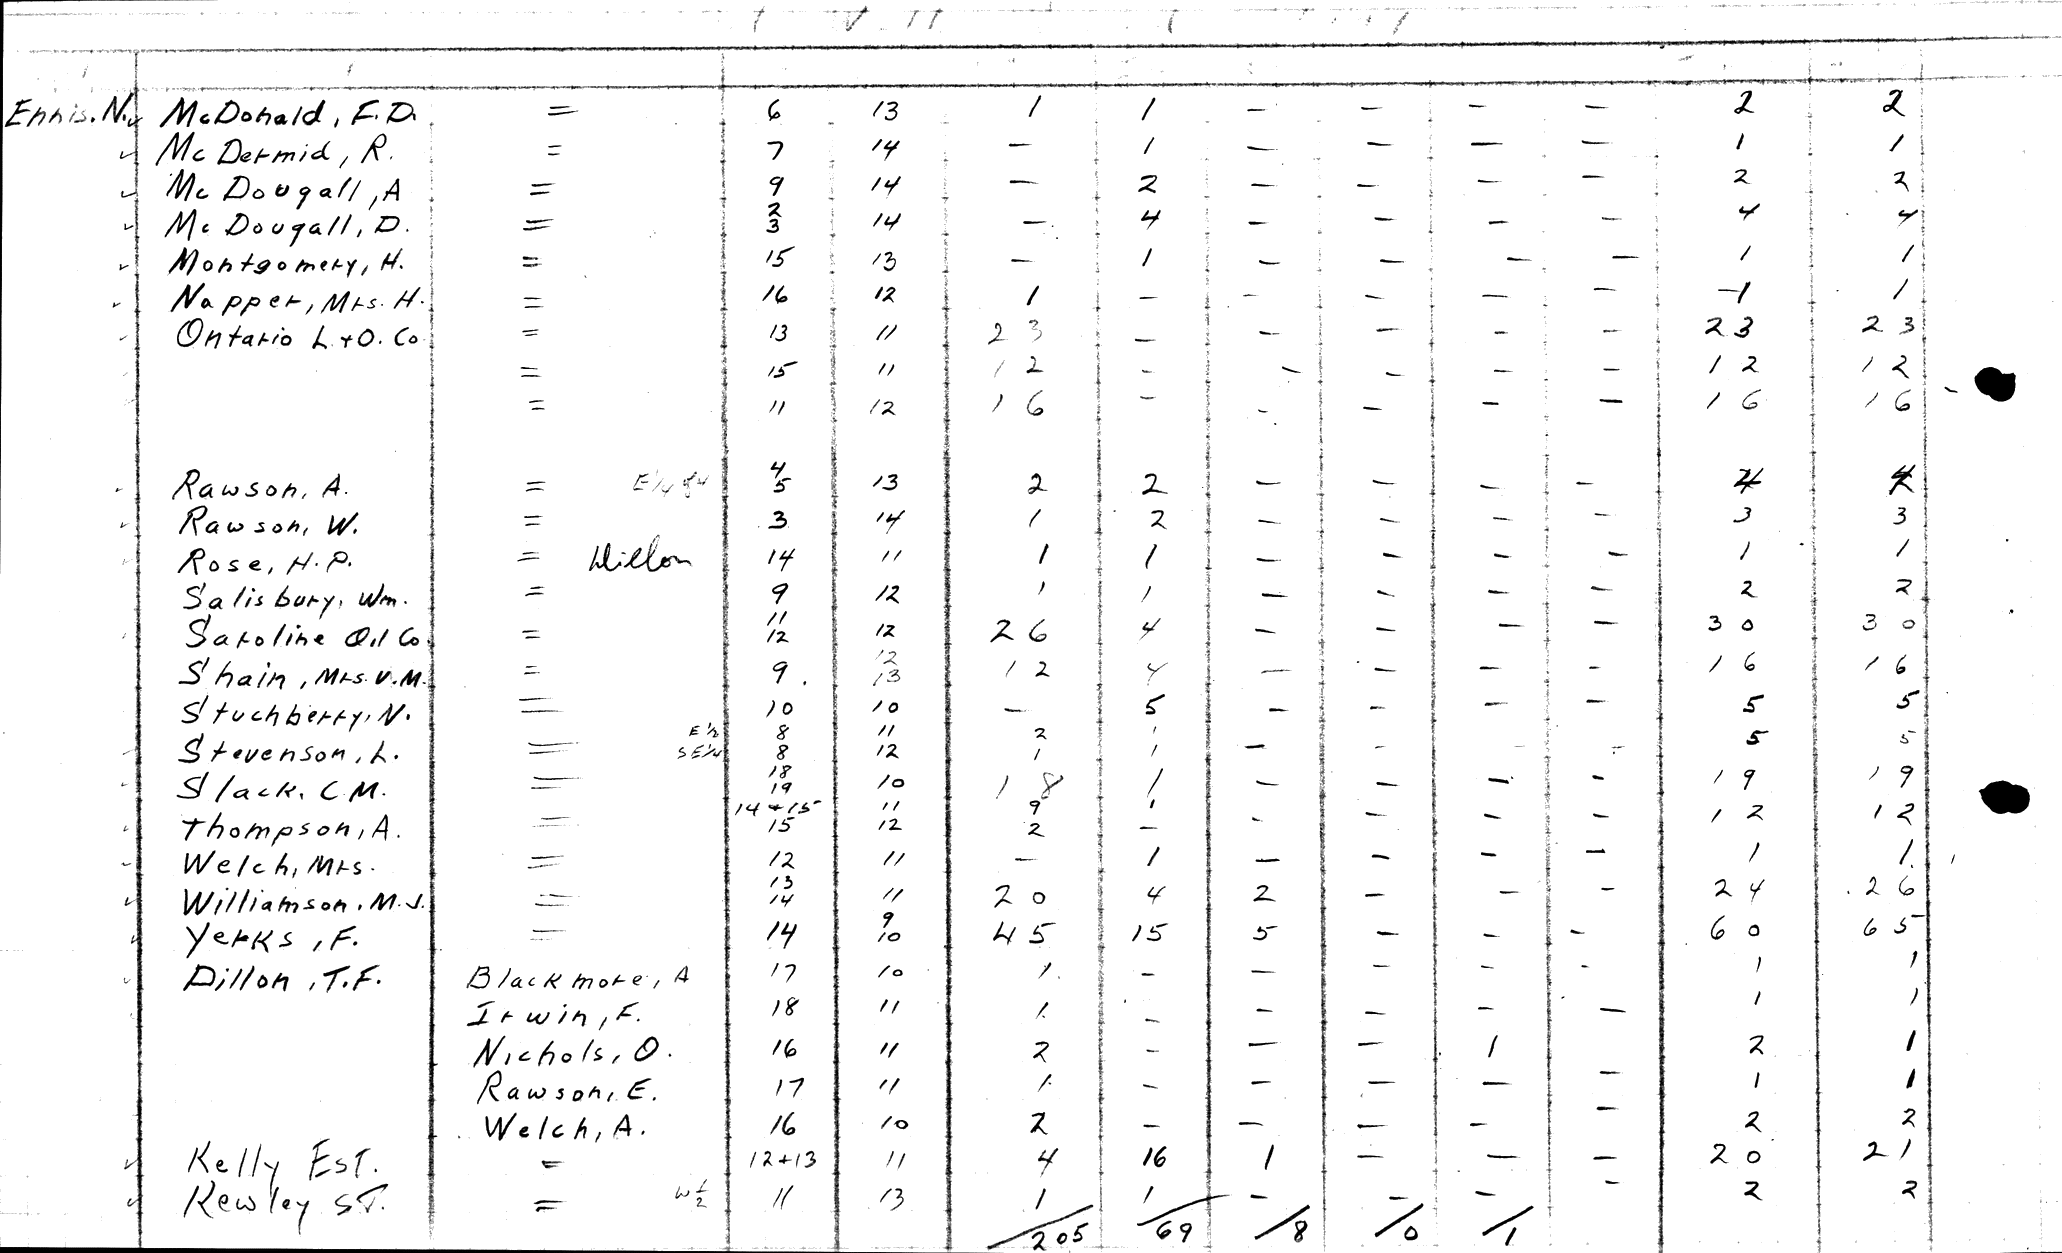 Ennis. N. ✓ McDonald, F.D. = 6 13 1 1 - - - - 2 2
✓ McDermid, R. = 7 14 - 1 - - - - 1 1
✓ McDougall, A = 9 14 - 2 - - - - 2 2
2
✓ McDougall, D. = 3 14 - 4 - - - - 4 4
✓ Montgomery, H. = 15 13 - 1 - - - - 1 1
✓ Napper, Mrs. H. = 16 12 1 - - - - - 1 1
✓ Ontario L.+O. Co. = 13 11 23 - - - - - 23 23
= 15 11 12 - - - - - 12 12
= 11 12 16 - - - - - 16 16
4
✓ Rawson, A. = E¼ of 4 5 13 2 2 - - - - 4 4
✓ Rawson, W. = 3 14 1 2 - - - - 3 3
Rose, H.P. = Dillon 14 11 1 1 - - - - 1 1
✓ Salisbury, Wm. = 9 12 1 1 - - - - 2 2
11
Saroline Oil Co. = 12 12 26 4 - - - - 30 30
12
✓ Shain, Mrs. V.M. = 9 13 12 4 - - - - 16 16
Stuchberry, N. = 10 10 - 5 - - - - 5 5
E½ 8 11 2 1
✓ Stevenson, L. = SE¼ 8 12 1 1 - - - - 5 5
18
✓ Slack, C.M. = 19 10 18 1 - - - - 19 19
14+15 11 9 1
✓ Thompson, A. = 15 12 2 - - - - - 12 12
✓ Welch, Mrs. = 12 11 - 1 - - - - 1 1
13
✓ Williamson, M.J. = 14 11 20 4 2 - - - 24 26
9
✓ Yerks, F. = 14 10 45 15 5 - - - 60 65
✓ Dillon, T.F. Blackmore, A 17 10 1 - - - - - 1 1
Irwin, F. 18 11 1 - - - - - 1 1
Nichols, O. 16 11 2 - - - 1 2 1
Rawson, E. 17 11 1 - - - - - 1 1
Welch, A. 16 10 2 - - - - - 2 2
✓ Kelly EST. = 12+13 11 4 16 1 - - - 20 21
✓ Kewley ST. = W½ 11 13 1 1 - - - - 2 2
205 69 8 0 1